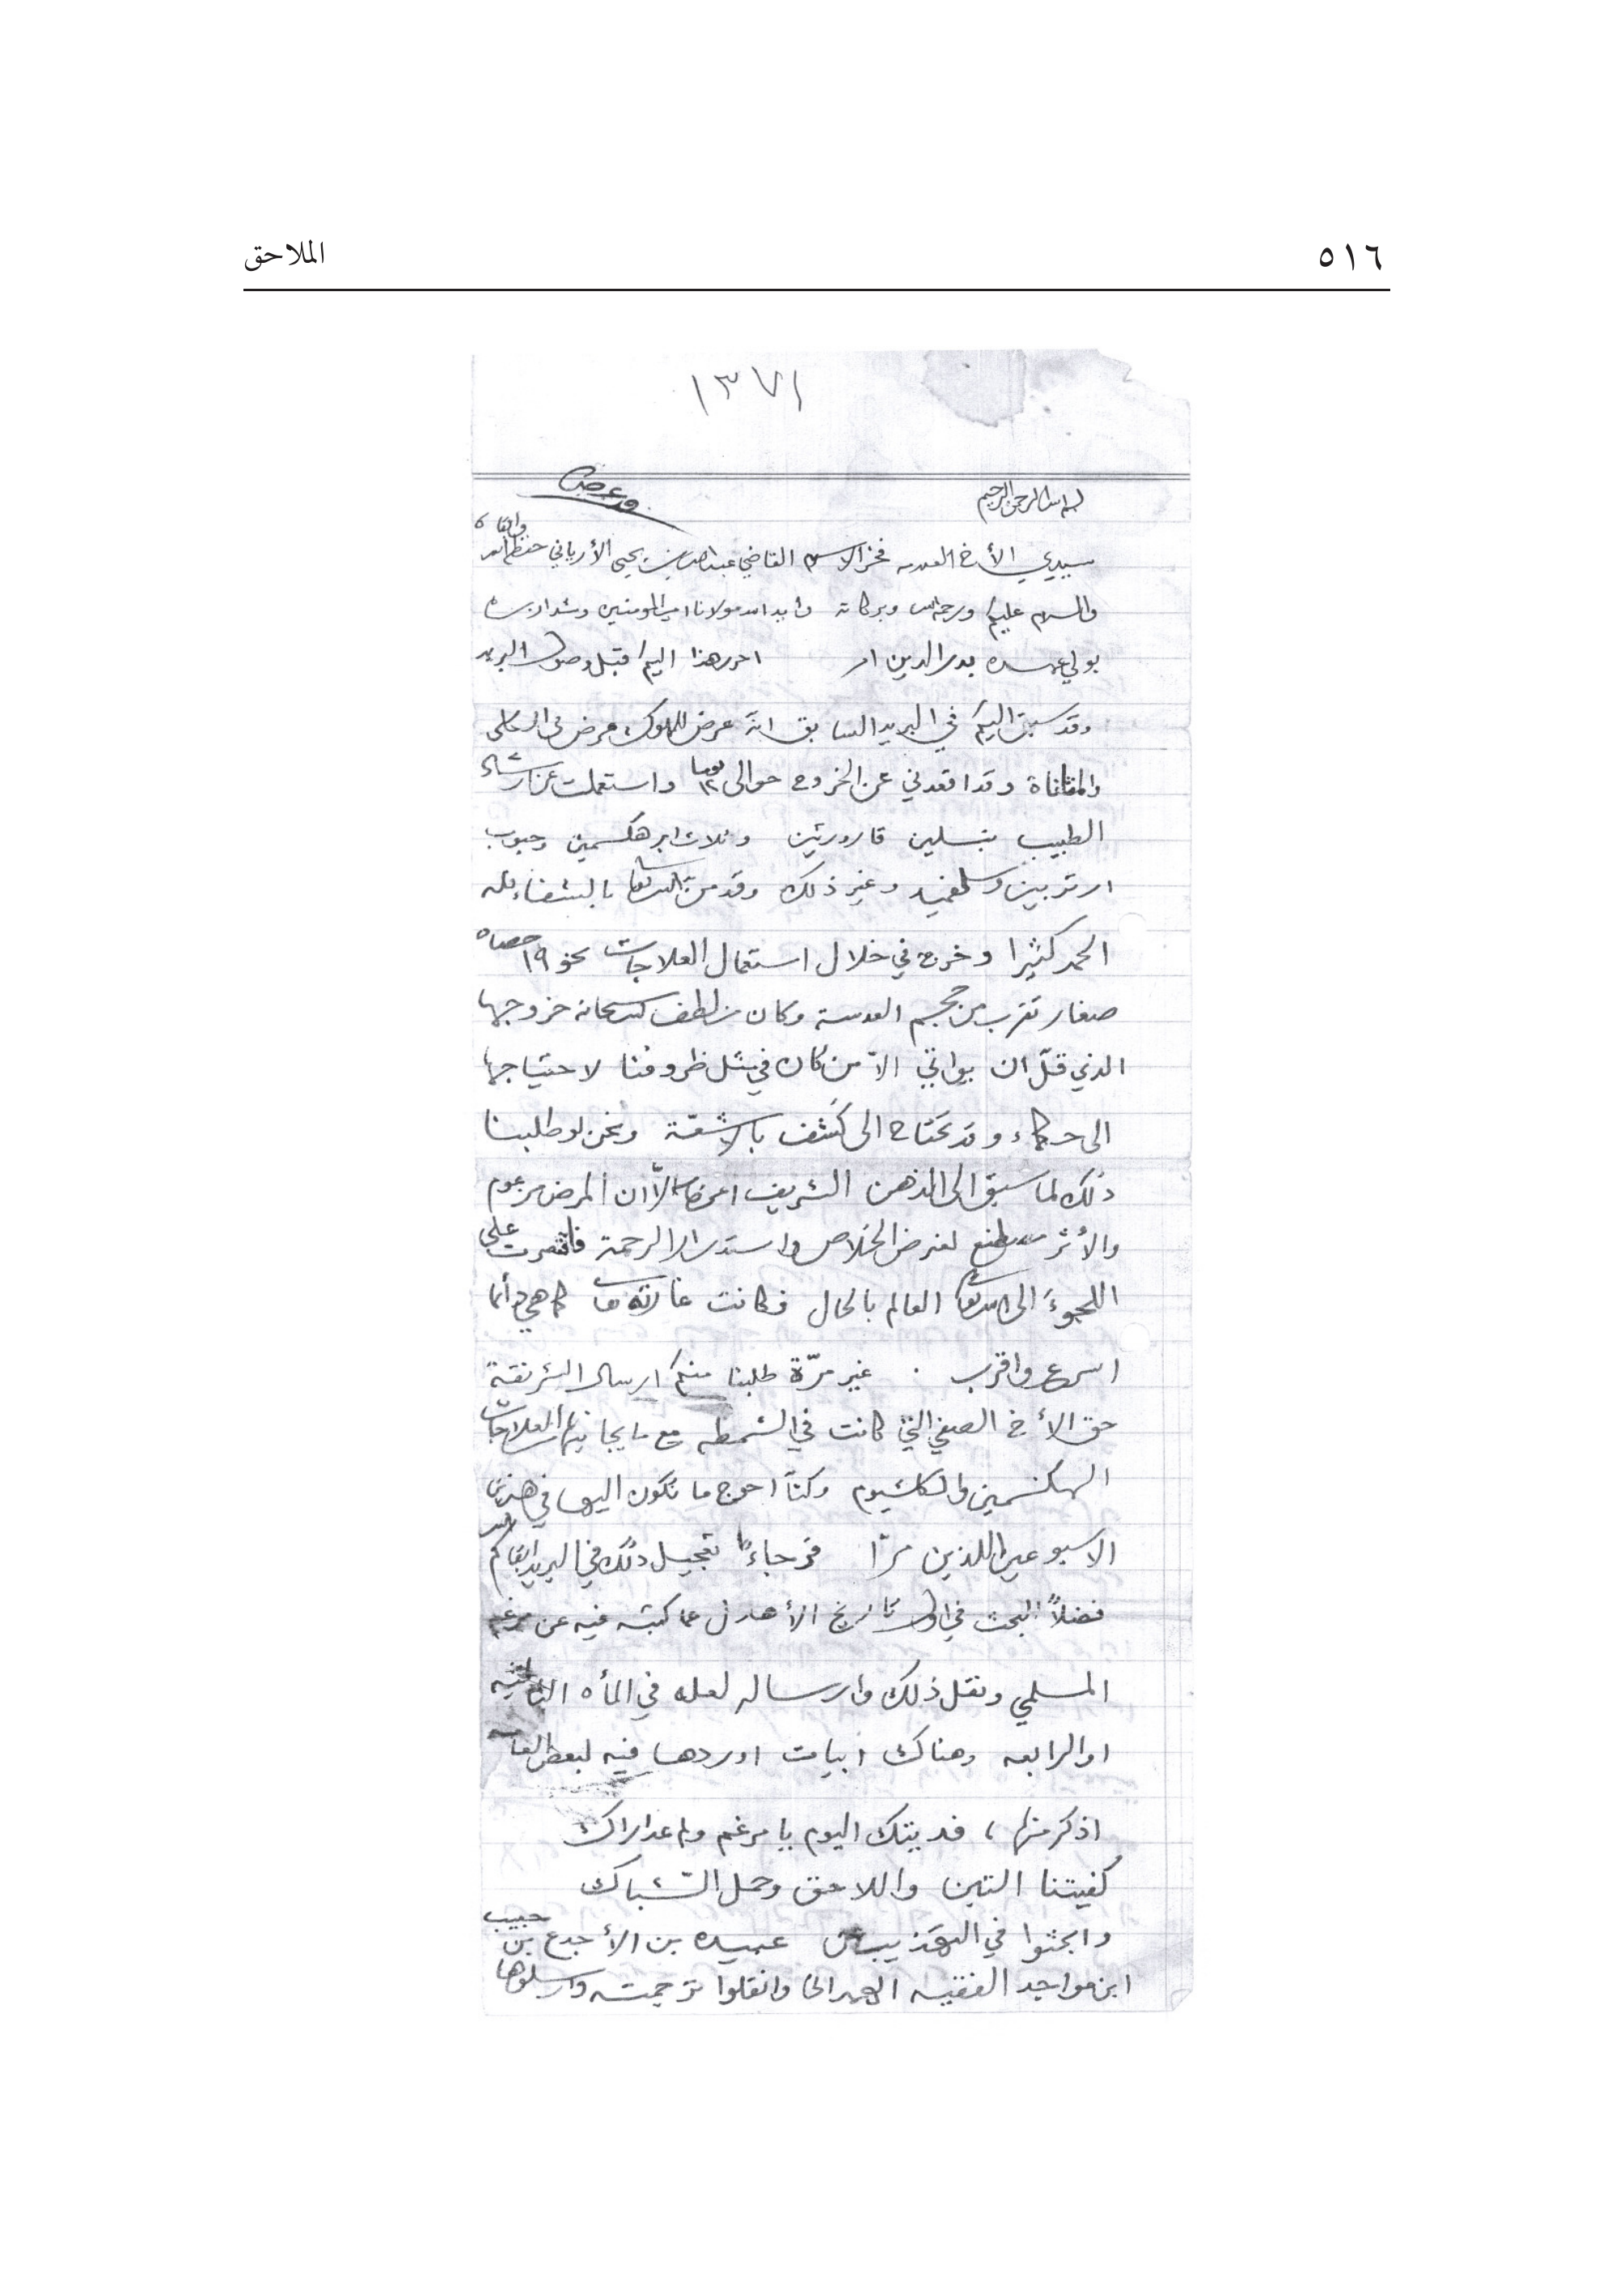 ٥١٦
الملاحق
١٣٧١
بسم الله الرحمن الرحيم
سيدي الأخ العلامه فخر الاسلام القاضي عبدالله بن يحيى الأرياني حفظه الله وابقاه
والسلام عليكم ورحمة الله وبركاته وأيد الله مولانا امير المومنين وشد ازره
بولي عهده بدر الدين احرر هذا اليكم قبل وصول البريد
وقد سبق اليكم في البريد السابق انه عرض للملوك مرض في الكلى
والمثاناة وقد اقعدني عن الخروج حوالى ١٢ يوما واستعملت عن ارشاد
الطبيب بنسلين قارورتين وثلاث ابر هكسمين وحبوب
وغير ذلك وقد من الله تعالى بالشفاء فله
الحمد كثيرا وخرج في خلال استعمال العلاجات نحو ١٩ حصاه
صغار تقرب من حجم العدسة وكان من لطف الله سبحانه خروجها
الذي قلّ ان يواتي الاّ من كان في مثل ظروفنا لاحتياجها
الى حكماء وقد تحتاج الى كشف بالاشعّة ونحن لو طلبنا
ذلك لما سبق الى الذهن الشريف الاّ ان المرض مزعوم
والأثر مصطنع لغرض الخلاص واستدرار الرحمة فاقتصرت على
اللجوء الى الله تعالى العالم بالحال فكانت غارته كما هي دائما
اسرع واقرب . غير مرّة طلبنا منكم ارسال الشرنقة
حق الأخ الصفي التي كانت في الشمطه مع ما بجانبها من العلاجات
الهكسمين والكالسيوم وكنّا احوج ما نكون اليها في هذين
الاسبوعين اللذين مرّا فرجاءً تعجيل ذلك في البريد ابقاكم الله
فضلاً البحث في اول تاريخ الأهدل عما كتبه فيه عن مرغم
المسلمي ونقل ذلك وارساله لعله في المأه الثانيه
او الرابعه وهناك ابيات اوردها فيه لبعض
اذكر منها ، فديتك اليوم يا مرغم
كفيتنا التين واللاحق وحمل الشباك
وابحثوا في التهذيب عن عبيده بن الأجدع بن حبيب
ابن مواجد الفقيه الهمداني وانقلوا ترجمته وارسلوها